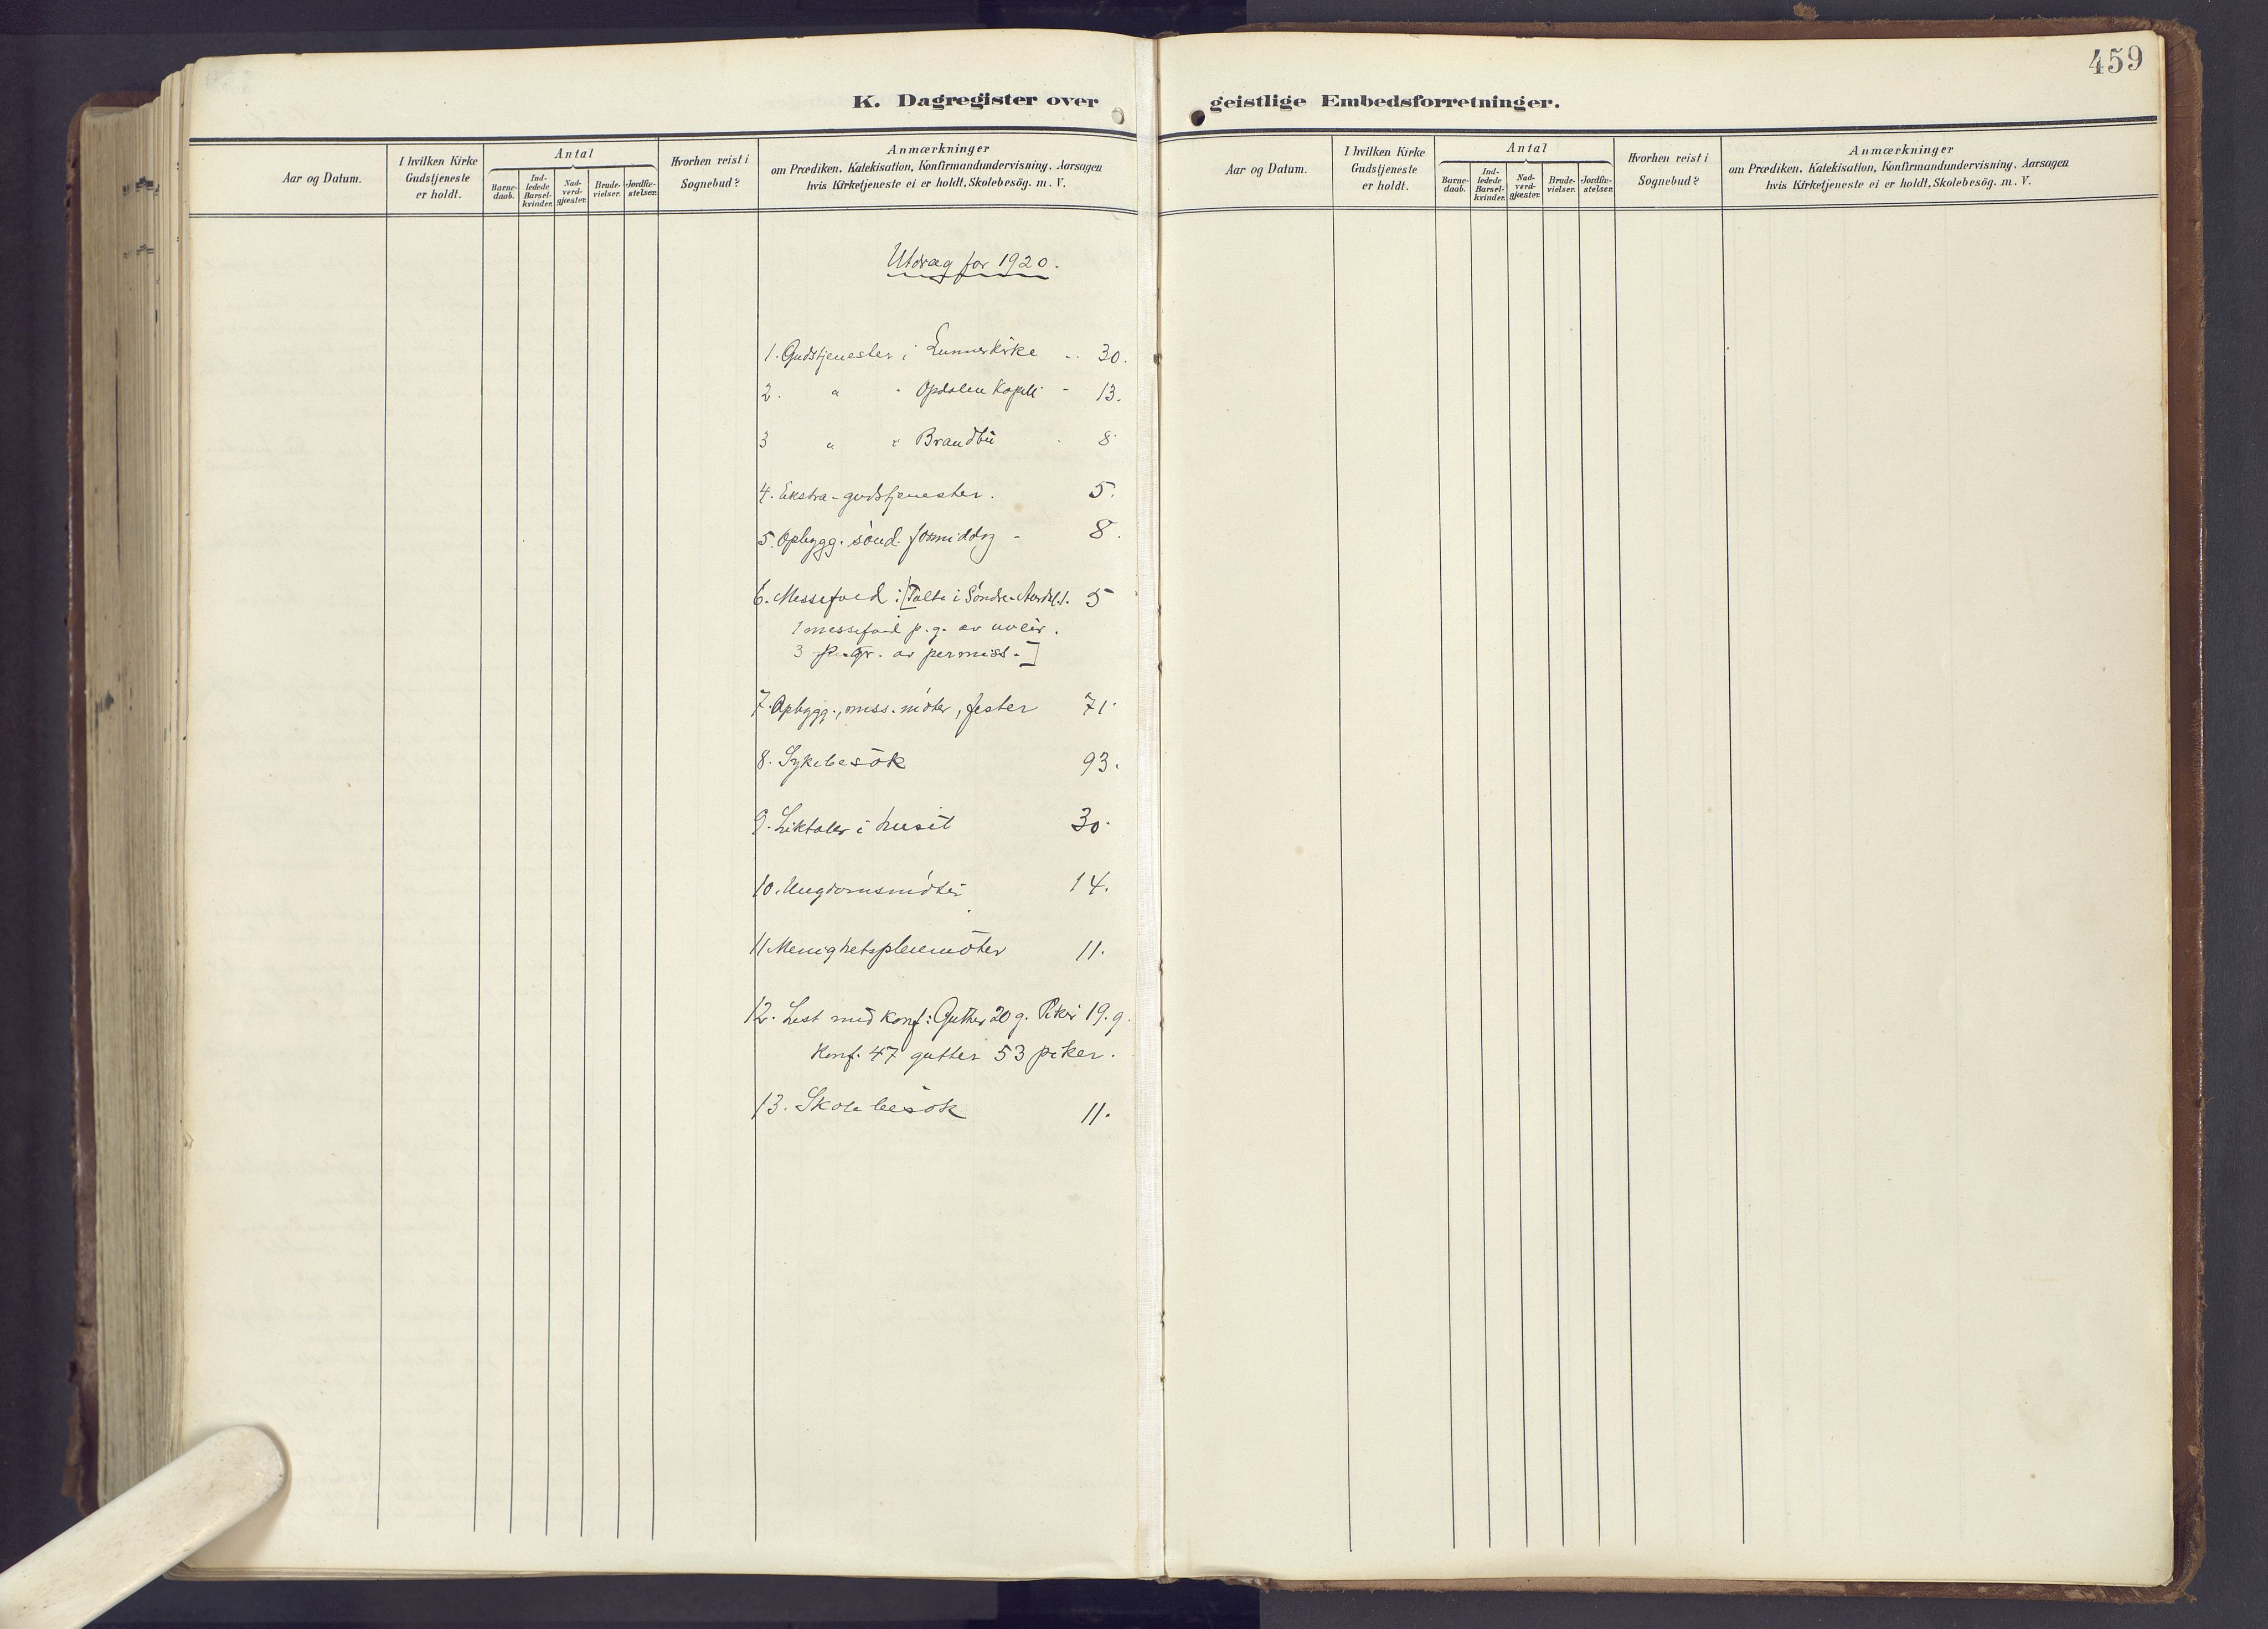 459
K. Dagregister over geistlige Embedsforretninger.
Aar og Datum.
I hvilken Kirke
Gudstjeneste
er holdt.
Antal
Barne-
daab.
Ind-
ledede
Barsel-
kvinder.
Nad-
verd-
gjæster.
Brude-
vielser.
Jordfæ-
stelser.
Hvorhen reist i
Sognebud?
Anmærkninger
om Prædiken, Katekisation, Konfirmandundervisning, Aarsagen
hvis Kirketjeneste ei er holdt, Skolebesög. m. V.
Utdrag for 1920.
1. Gudstjenester i Lunner kirke .. 30.
2. " " Opdalen kapell - 13.
3 " " Brandbu . 8
4. Ekstra-gudstjenester. 5.
5. Opbygg. sönd. formiddag - 8.
6. Messefald : [Talte i Söndre- 5
1 messefald p. g. av uveir.
3 p. gr. av permiss.]
7. Opbygg., miss. möter, fester 71.
8. Sykebesök 93.
9. Liktaler i huset 30.
10. Ungdomsmöter 14.
11 Menighetspleiemöter 11.
12. Lest med konf: Gutter 20 g. Piker 19. g.
Konf. 47 gutter 53 piker.
13. Skolebesök 11.
Aar og Datum.
I hvilken Kirke
Gudstjeneste
er holdt.
Antal
Barne-
daab.
Ind-
ledede
Barsel-
kvinder.
Nad-
verd-
gjæster.
Brude-
vielser.
Jordfæ-
stelser.
Hvorhen reist i
Sognebud?
Anmærkninger
om Prædiken, Katekisation, Konfirmandundervisning, Aarsagen
hvis Kirketjeneste ei er holdt, Skolebesög. m. V.